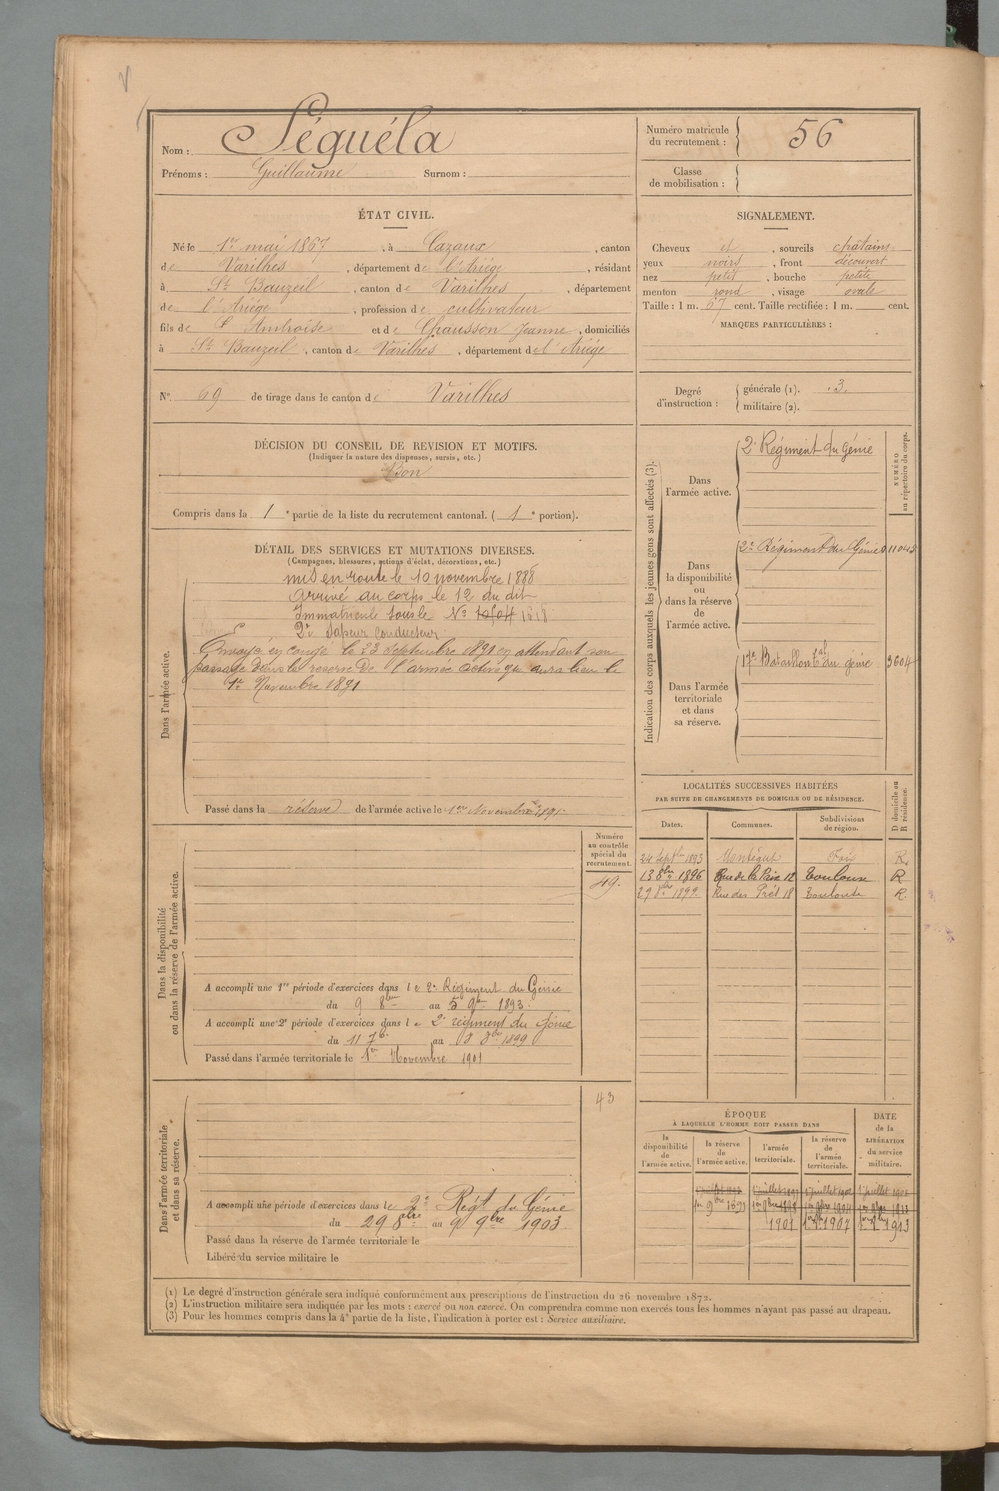 Nom : Séguéla
Prénoms : Guillaume Surnom :
ÉTAT CIVIL.
Né le 1er mai 1867, à Cazaux, canton
de Varilhes, département de l'Ariège, résidant
à St Bauzeil, canton de Varilhes, département
de l'Ariège, profession de cultivateur
fils de Ambroise et de Chausson Jeanne, domiciliés
à St Bauzeil, canton de Varilhes, département de l'Ariége
N° 69 de tirage dans le canton de Varilhes
DÉCISION DU CONSEIL DE REVISION ET MOTIFS.
(Indiquer la nature des dispenses, sursis, etc.)
Bon
Compris dans la 1e partie de la liste du recrutement cantonal. (1e portion).
DÉTAIL DES SERVICES ET MUTATIONS DIVERSES.
(Campagnes, blessures, actions d'éclat, décorations, etc.)
Dans l'armée active.
mis en route le 10 novembre 1888
Arrivé au corps le 12 du dit
Immatriculé sous le No 1318
2e Sapeur Conducteur
Envoyé en congé le 23 Septembre 1891 en attendant son
passage dans la reserve de l'armée active qui aura lieu le
1er Novembre 1891
Passé dans la réserve de l'armée active le 1er Novembre 1891
Dans la disponibilité
ou dans la réserve de l'armée active.
Numéro
au contrôle
spécial du
recrutement.
49.
A accompli une 1re période d'exercices dans le 2e Régiment du Génie
du 9 8bre au 5 9bre 1893
A accompli une 2e période d'exercices dans le 2e régiment du Génie
du 11 7bre au 8 8bre 1899
Passé dans l'armée territoriale le 1er Novembre 1901
Dans l'armée territoriale
et dans sa réserve.
43
A accompli une période d'exercices dans le 2e Régt du Génie
du 29 8bre au 9 9bre 1903
Passé dans la réserve de l'armée territoriale le
Libéré du service militaire le
Numéro matricule
du recrutement : 56
Classe
de mobilisation :
SIGNALEMENT.
Cheveux et, sourcils châtains
yeux noirs, front découvert
nez petit, bouche petite
menton rond, visage ovale
Taille : 1 m. 67 cent. Taille rectifiée : 1 m. cent.
MARQUES PARTICULIÈRES :
Degré
d'instruction :
générale (1). 3.
militaire (2).
Indication des corps auxquels les jeunes gens sont affectés (3).
NUMÉRO
au répertoire du corps.
Dans
l'armée active.
2e Régiment du Génie
Dans
la disponibilité
ou
dans la réserve
de
l'armée active.
2e Régiment du Génie 011043
Dans l'armée
territoriale
et dans
sa réserve.
17e Bataillon tal du génie 3604
LOCALITÉS SUCCESSIVES HABITÉES
PAR SUITE DE CHANGEMENTS DE DOMICILE OU DE RÉSIDENCE.
D domicile ou
R résidence.
Dates. Communes. Subdivisions
de région.
24 Septbre 1893 Montégut Foix R.
13 8bre 1896 Rue de la Paix 12 Toulouse R
29 8bre 1899 Rue des Prés 18 Toulouse R.
ÉPOQUE
À LAQUELLE L'HOMME DOIT PASSER DANS
DATE
de la
LIBÉRATION
du service
militaire.
la
disponibilité
de
l'armée active.
la réserve
de
l'armée active.
l'armée
territoriale.
la réserve
de
l'armée
territoriale.
1901 1907 1913
(1) Le degré d'instruction générale sera indiqué conformément aux prescriptions de l'instruction du 26 novembre 1872.
(2) L'instruction militaire sera indiquée par les mots : exercé ou non exercé. On comprendra comme non exercés tous les hommes n'ayant pas passé au drapeau.
(3) Pour les hommes compris dans la 4e partie de la liste, l'indication à porter est : Service auxiliaire.